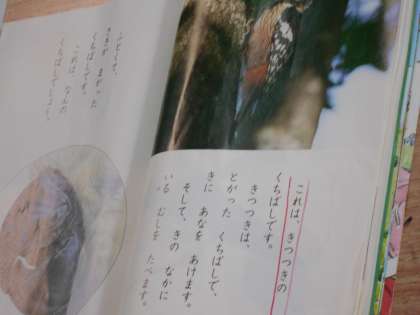 これは、きつつきの
くちばしです。
きつつきは、
とがった くちばしで、
きに あなを あけます。
そして、きの なかに
いる むしを たべます。
ふとくて、
さきが まがった
くちばしです。
これは、なんの
くちばしでしょう。